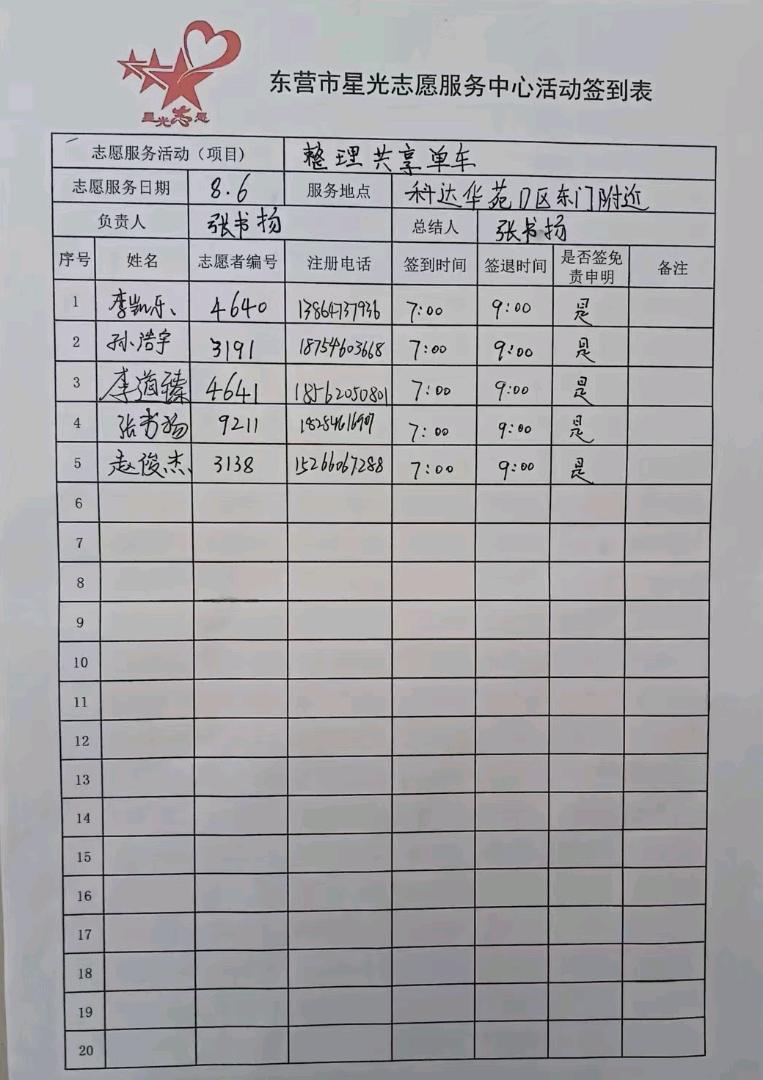 星光志愿
东营市星光志愿服务中心活动签到表
志愿服务活动（项目） 整理共享单车
志愿服务日期 8.6 服务地点 科达华苑D区东门附近
负责人 张书扬 总结人 张书扬
序号 姓名 志愿者编号 注册电话 签到时间 签退时间 是否签免责申明 备注
1 李凯乐、 4640 13864737936 7:00 9:00 是
2 孙浩宇 3191 18754603668 7:00 9:00 是
3 李道臻 4641 18562050801 7:00 9:00 是
4 张书扬 9211 7:00 9:00 是
5 赵俊杰 3138 15266067288 7:00 9:00 是
6
7
8
9
10
11
12
13
14
15
16
17
18
19
20